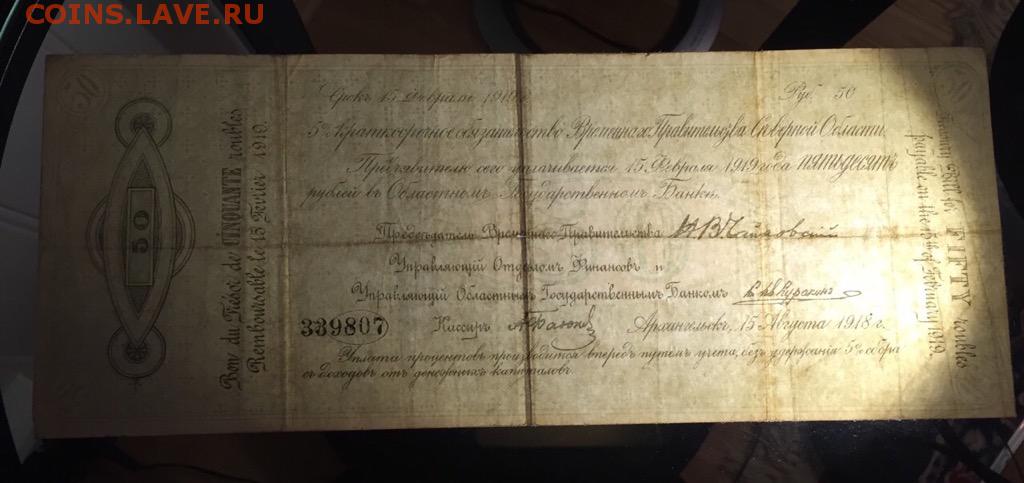 COINS.LAVE.RU
50
50
Bon du Trésor de CINQUANTE roubles
Remboursable le 15 Février 1919.
Срокъ 15 Февраля 1919 г.
Руб. 50
5% Краткосрочное обязательство Временнаго Правительства Сѣверной Области
Предъявителю сего уплачивается 15 Февраля 1919 года пятьдесятъ
рублей въ Областномъ Государственномъ Банкѣ.
Предсѣдатель Временнаго Правительства Н. В. Чайковскій
Управляющій Отдѣломъ Финансовъ и
Управляющій Областнымъ Государственнымъ Банкомъ Куракинъ
339807 Кассиръ Архангельскъ, 15 Августа 1918 г.
Уплата процентовъ производится впередъ путемъ учета, безъ удержанія 5% сбора
съ доходовъ отъ денежныхъ капиталовъ.
FIFTY roubles
payable on the 15 of February 1919.